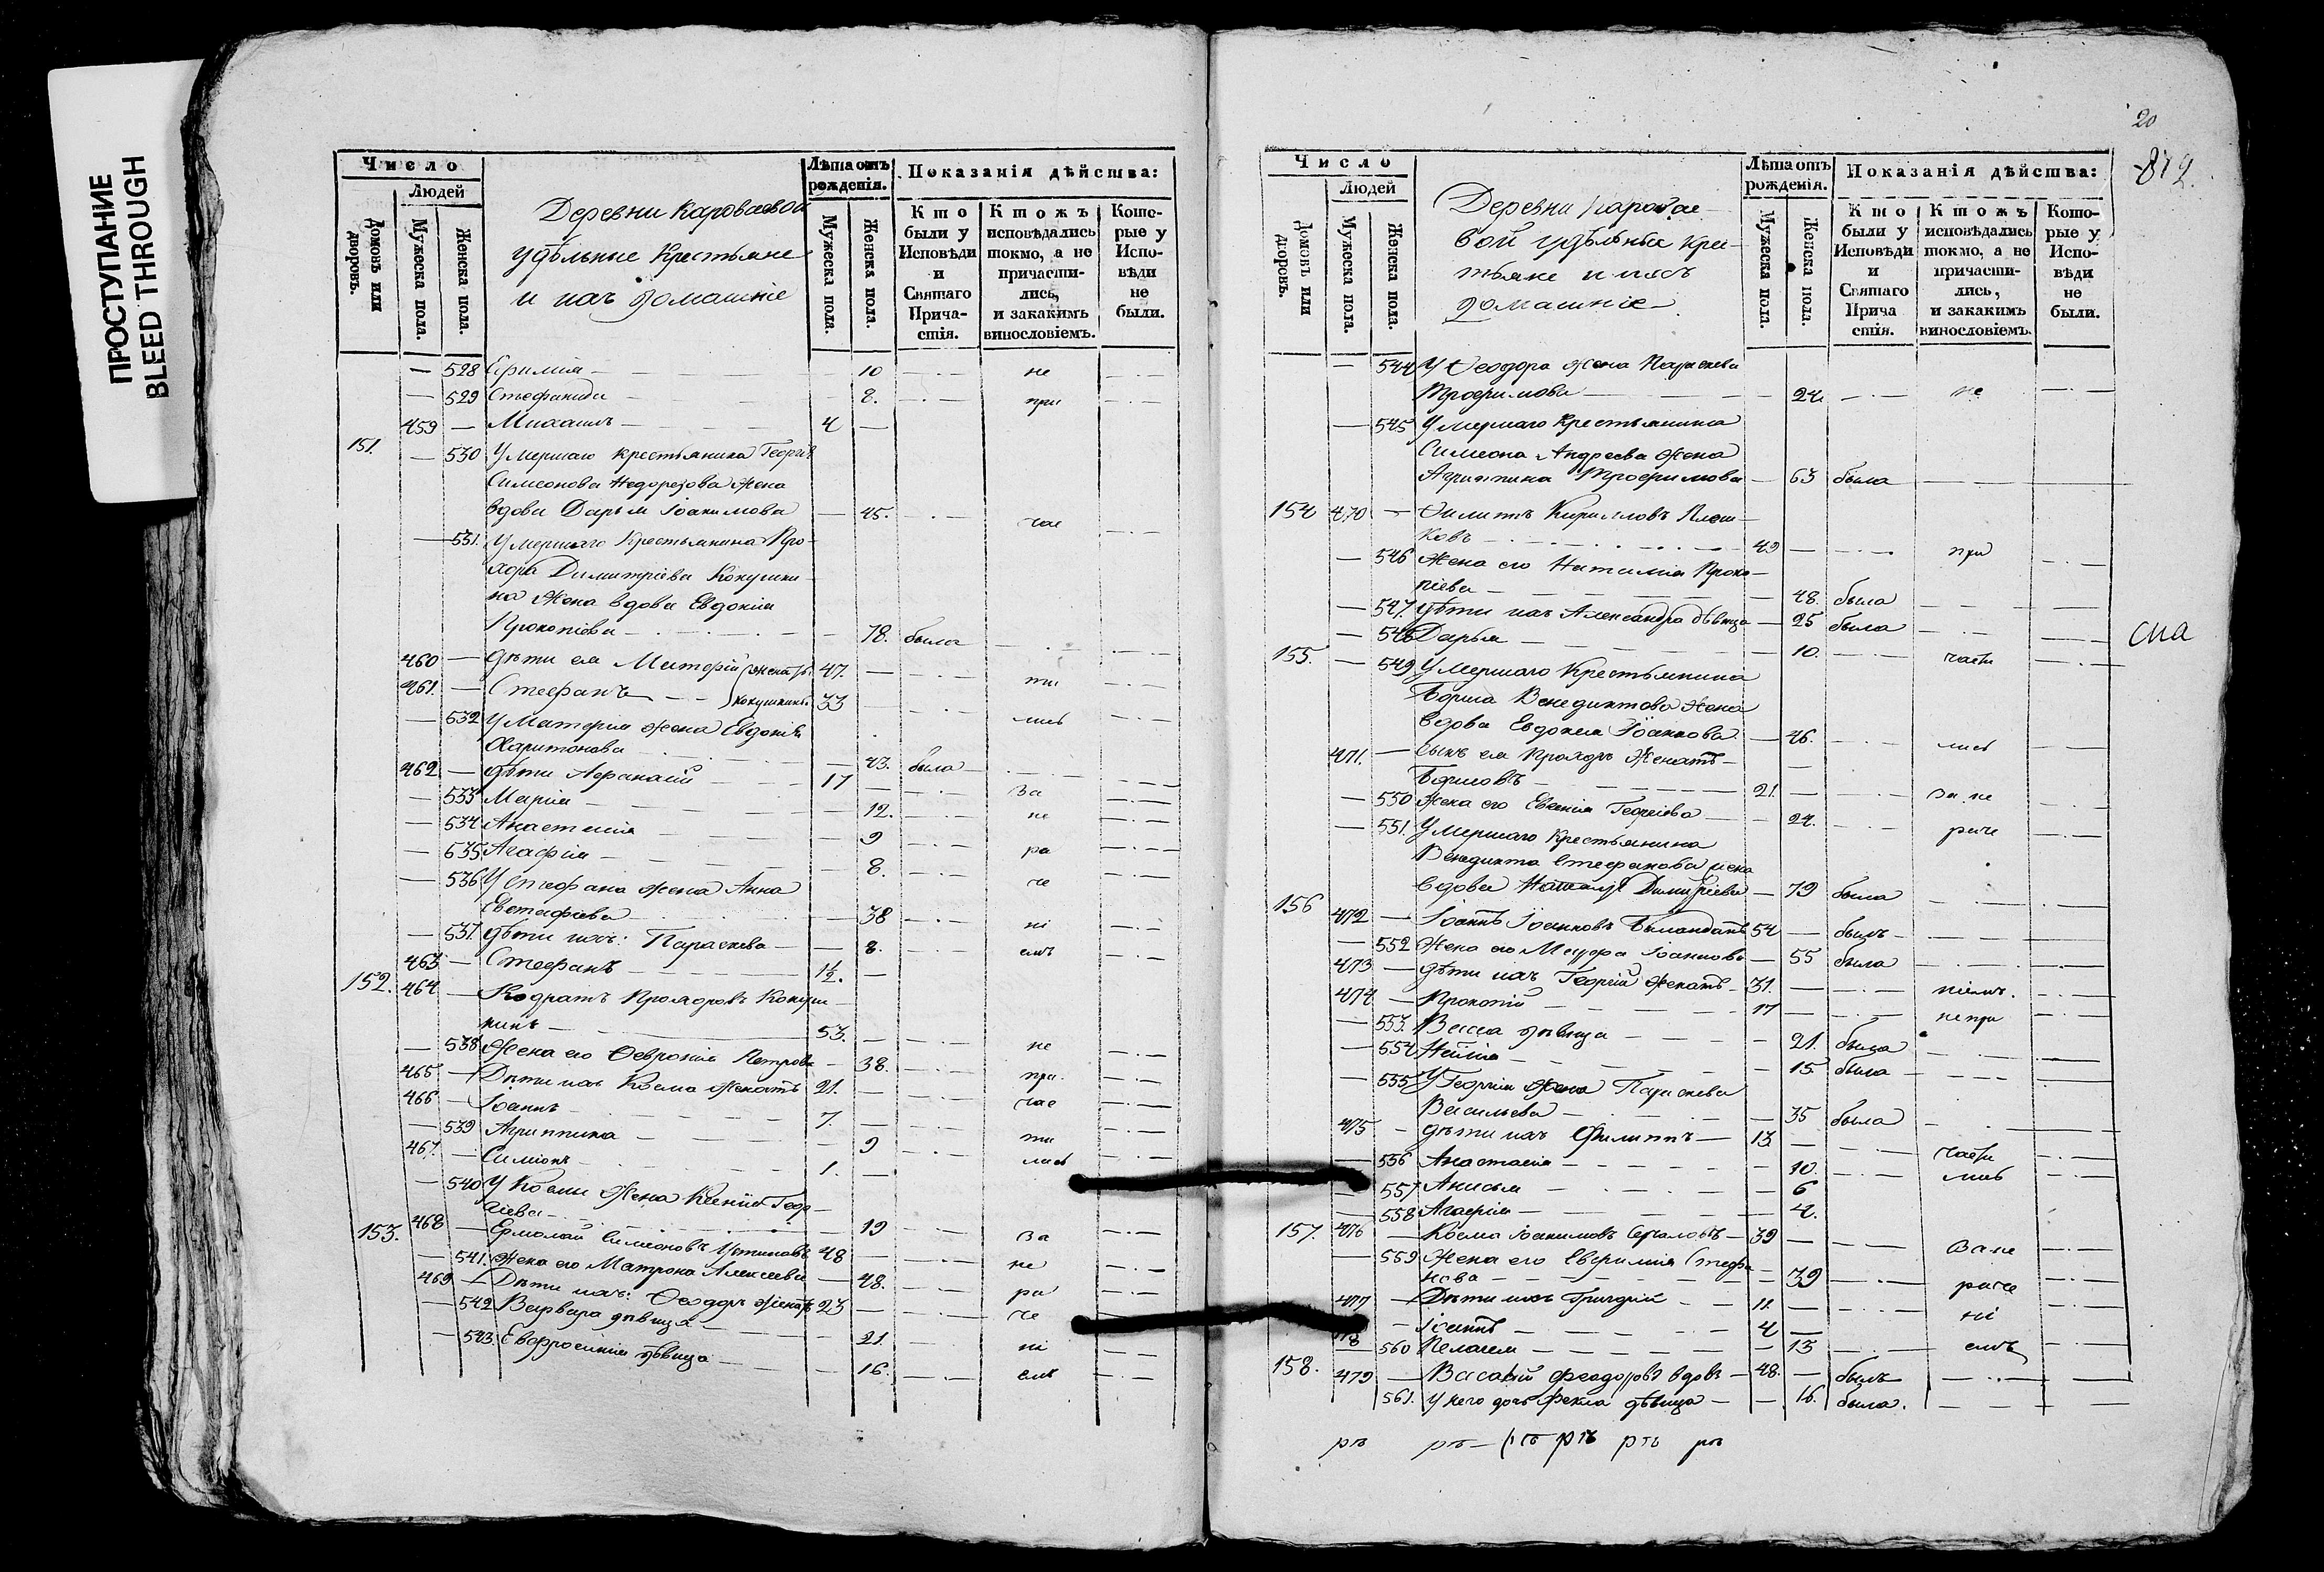 ПРОСТУПАНИЕ
BLEED THROUGH
Число
Людей
Домовъ или дворовъ.
Мужеска пола.
Женска пола.
Деревни Караваевой
удѣльные Крестьяне
и ихъ домашніе
Лѣта отъ рожденія.
Мужеска пола.
Женска пола.
Показанія дѣйства:
Кто были у Исповѣди и Святаго Причастія.
Ктожъ исповѣдались токмо, а не причастились, и закакимъ винословіемъ.
Которые у Исповѣди не были.
— 528 Ефимія — 10 — не —
— 529 Стефанида — 8. — при —
459 — Михаилъ — 4 —
151. — 530 Умершаго крестьянина Георгія
Симеонова Недорезова жена
вдова Дарья Іоакимова — 45. — час —
— 531. Умершаго Крестьянина Про-
хора Димитріева Кокушки-
на жена вдова Евдокія
Прокопіева — 78. была —
460 — дѣти ея Матфій женатъ 47. — ти —
461. — Стефанъ — Кокушкины 33 — лись —
— 532 У Матфія жена Евдокія
Харитонова — 43. была —
462 — дѣти Афанасій — 17 — За —
— 533 Марія — 12. — не —
— 534 Анастасія — 9 — ра —
— 535 Агафія — 8. — че —
— 536 У Стефана жена Анна
Евстафіева — 38 — ні —
— 537. дѣти ихъ: Параскева — 8. — емъ —
463 — Стефанъ — 1½. —
152. 464 — Кодратъ Прохоровъ Кокуш-
кинъ — 53. — не —
— 538 Жена его Февронія Петрова — 38. — при —
465 — Дѣти ихъ Косма женатъ 21. — час —
466 — Іоаннъ — 7. — ти —
— 539 Агриппина — 9 — лись —
467. — Симіонъ — 1. —
— 540 У Космы жена Ксенія Геор-
гіева — 19 — За —
153. 468 — Ермолай Симіоновъ Устиновъ 48 — не —
— 541. Жена его Матрона Алексеева — 48. — ра —
469 — Дѣти ихъ: Феодоръ женатъ 23 — че —
— 542 Варвара дѣвица — 21. — ні —
— 543. Евфросинія дѣвица — 16. — емъ —
20
819.
Число
Людей
Домовъ или дворовъ.
Мужеска пола.
Женска пола.
Деревни Каравае-
вой удѣльные крес-
тьяне и ихъ
домашніе
Лѣта отъ рожденія.
Мужеска пола.
Женска пола.
Показанія дѣйства:
Кто были у Исповѣди и Святаго Причастія.
Ктожъ исповѣдались токмо, а не причастились, и закакимъ винословіемъ.
Которые у Исповѣди не были.
— 544 У Феодора жена Параскева
Трофимова — 24. — не —
— 545 Умершаго Крестьянина
Симеона Андреева жена
Агриппина Трофимова — 63 была —
154 470 — Филиппъ Кирилловъ Плеш-
ковъ — 49 — при —
— 546 Жена его Наталія Проко-
піева — 48. была —
— 547 дѣти ихъ Александра дѣвица — 25 была —
— 548 Дарья — 10. — части —
сиа
155. — 549 Умершаго Крестьянина
Бориса Венедиктова жена
вдова Евдокія Іоаннова — 46. — лись —
471. — сынъ ея Прохоръ женатъ
Борисовъ — 21. — За не —
— 550 Жена его Евгенія Георгіева — 24. — раче —
— 551. Умершаго Крестьянина
Венедикта Стефанова жена
вдова Наталія Димитріева — 79 была —
156 472 — Іоаннъ Іоанновъ 54 — былъ —
— 552 Жена его Мавра Іоаннова — 55 была —
473 — дѣти ихъ Георгій женатъ 31. — ніемъ. —
474 — Прокопій — 17 — не при —
— 553. Васса дѣвица — 21. была —
— 554 — 15 была —
— 555 У Георгія жена Параскева
Васильева — 35 была —
475 — дѣти ихъ Филиппъ — 13 — части —
— 556 Анастасія — 10. — лись —
— 557 Анисья — 6
— 558 Агафія — 4.
157. 476 — Косма Іоакимовъ — 39 — За не —
— 559 Жена его Евфимія Стефа-
нова — 39 — раче —
477 — Дѣти ихъ Григорій — 11. — ні —
478 — Іоаннъ — 4 —
— 560 Пелагея — 13 — емъ —
158. 479 — Василій Феодоровъ вдовъ — 48. — былъ —
561. У него дочь Фекла дѣвица — 16. была. —